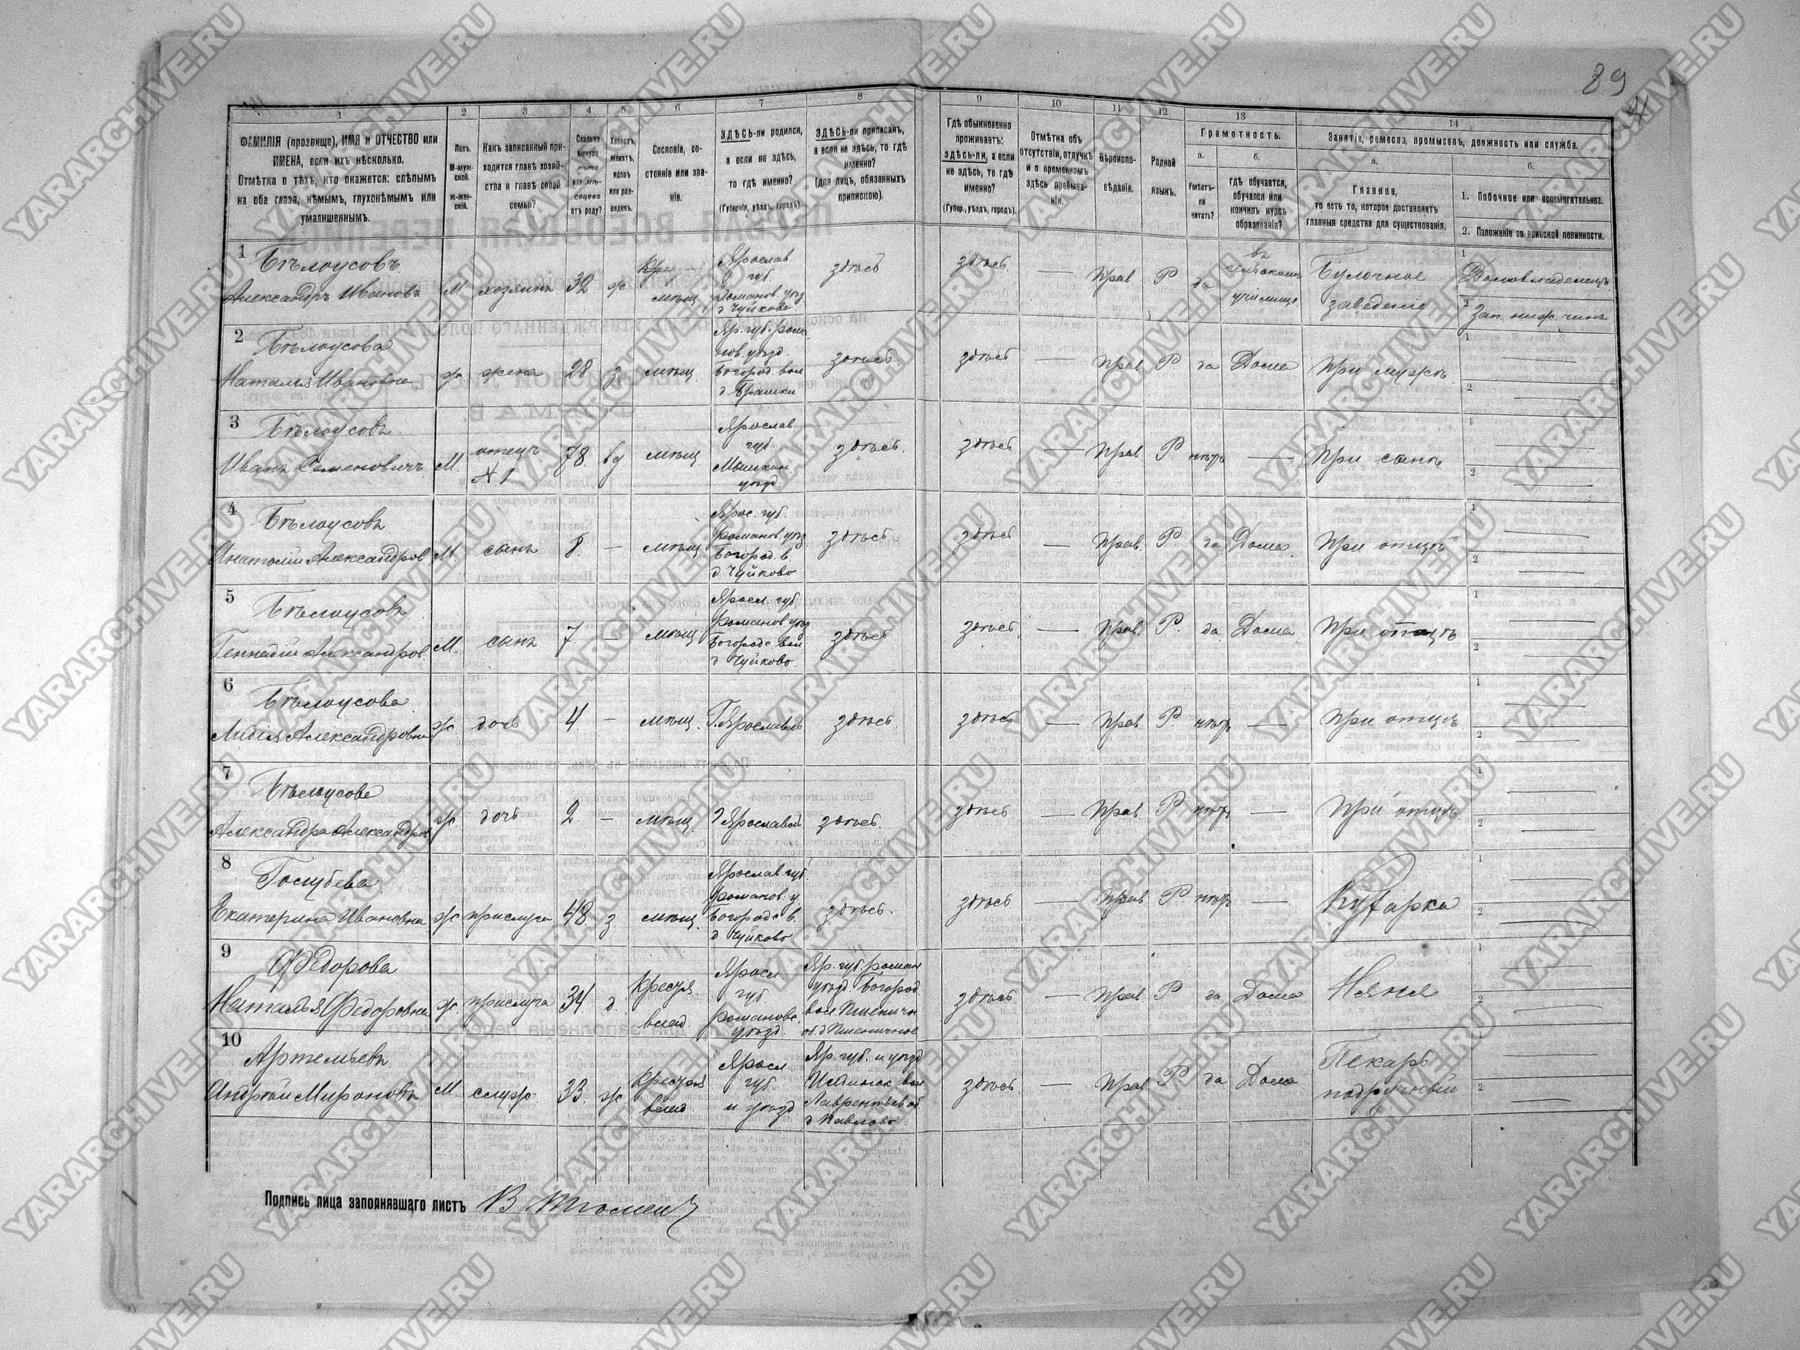 89
1
2
3
4
5
6
7
8
9
10
11
12
13
14
ФАМИЛІЯ (прозвище), ИМЯ и ОТЧЕСТВО или
ИМЕНА, если ихъ нѣсколько.
Отмѣтка о тѣхъ, кто окажется: слѣпымъ
на оба глаза, нѣмымъ, глухонѣмымъ или
умалишеннымъ.
Полъ.
М-мужской.
Ж-женскій.
Какъ записанный приходится главѣ хозяйства и главѣ своей семьи?
Сколько минуло лѣтъ или мѣсяцевъ отъ роду?
Холостъ, женатъ, вдовъ или разведенъ.
Сословіе, состояніе или званіе.
ЗДѢСЬ-ли родился,
а если не здѣсь,
то гдѣ именно?
(Губернія, уѣздъ, городъ)
ЗДѢСЬ-ли приписанъ,
а если не здѣсь, то гдѣ
именно?
(для лицъ, обязанныхъ
припискою).
Гдѣ обыкновенно
проживаетъ:
здѣсь-ли, а если
не здѣсь, то гдѣ
именно?
(Губер., уѣздъ, городъ).
Отмѣтка объ
отсутствіи, отлучкѣ
и о временномъ
здѣсь пребываніи.
Вѣроисповѣданіе.
Родной
языкъ.
Грамотность.
а.
Умѣетъ-ли
читать?
б.
гдѣ обучается,
обучался или
кончилъ курсъ
образованія?
Занятіе, ремесло, промыселъ, должность или служба.
а.
Главное,
то есть то, которое доставляетъ
главныя средства для существованія.
б.
1. Побочное или вспомогательное.
2. Положеніе по воинской повинности.
1
Бѣлоусовъ
Александръ Ивановъ М хозяинъ 32 ж мѣщ
Ярослав губ. Романов. уѣзд д Чуйково
здѣсь здѣсь — Прав Р да училище
Булочное заведеніе
1 Домовладелецъ
2 Зап. ниж. чинъ
2
Бѣлоусова
Наталья Ивановна ж жена 28 з мѣщ
Яр. губ. роман. уѣзд. Богород. вол
здѣсь здѣсь — Прав Р да Дома При мужѣ
1
2
3
Бѣлоусовъ
Иванъ Семеновичъ М. отецъ № 1 78 вд мѣщ
Ярослав губ. Мышкин уѣзд
здѣсь. здѣсь — Прав Р нѣтъ — При сынѣ
1
2
4
Бѣлоусовъ
Анатолій Александров М. сынъ 8. — мѣщ
Ярос. губ. романов уѣзд Богород. в. д Чуйково
здѣсь здѣсь — Прав Р да Дома. При отцѣ
1
2
5
Бѣлоусовъ
Геннадій Александров. М. сынъ 7 — мѣщ
Яросл. губ. романов уѣзд Богородс. вол д Чуйково
здѣсь здѣсь. — Прав. Р. да Дома При отцѣ
1
2
6
Бѣлоусова
Лидія Александровна ж. дочь 4. — мѣщ. Г. Ярославль
здѣсь. здѣсь — Прав Р нѣтъ — При отцѣ
1
2
7
Бѣлоусова
Александра Александров ж. дочь 2 — мѣщ. г Ярославль
здѣсь. здѣсь — Прав. Р нѣтъ — При отцѣ
1
2
8
Голубева
Екатерина Ивановна ж прислуга 48. з мѣщ.
Ярослав губ. романов. у. Богородс в. д Чуйково
здѣсь. здѣсь — Прав Р нѣтъ — Кухарка
1
2
9
Федорова
Наталья Федоровна ж. прислуга 34 д. Кресть
Яросл губ. романовс уѣзд.
Яр. губ. роман уѣзд Богород вол Пшеничн об. д Пшеничное
здѣсь — Прав Р да Дома Няня
1
2
10
Артемьевъ
Андрей Мироновъ. М служ. 33. ж Крестья
Яросл губ. и уѣзд
Яр. губ. и уѣзд вол Лаврентьев об д Павлово.
здѣсь — Прав Р да Дома Пекарь подручный
1
2
Подпись лица заполнявшаго листъ
YARARCHIVE.RU